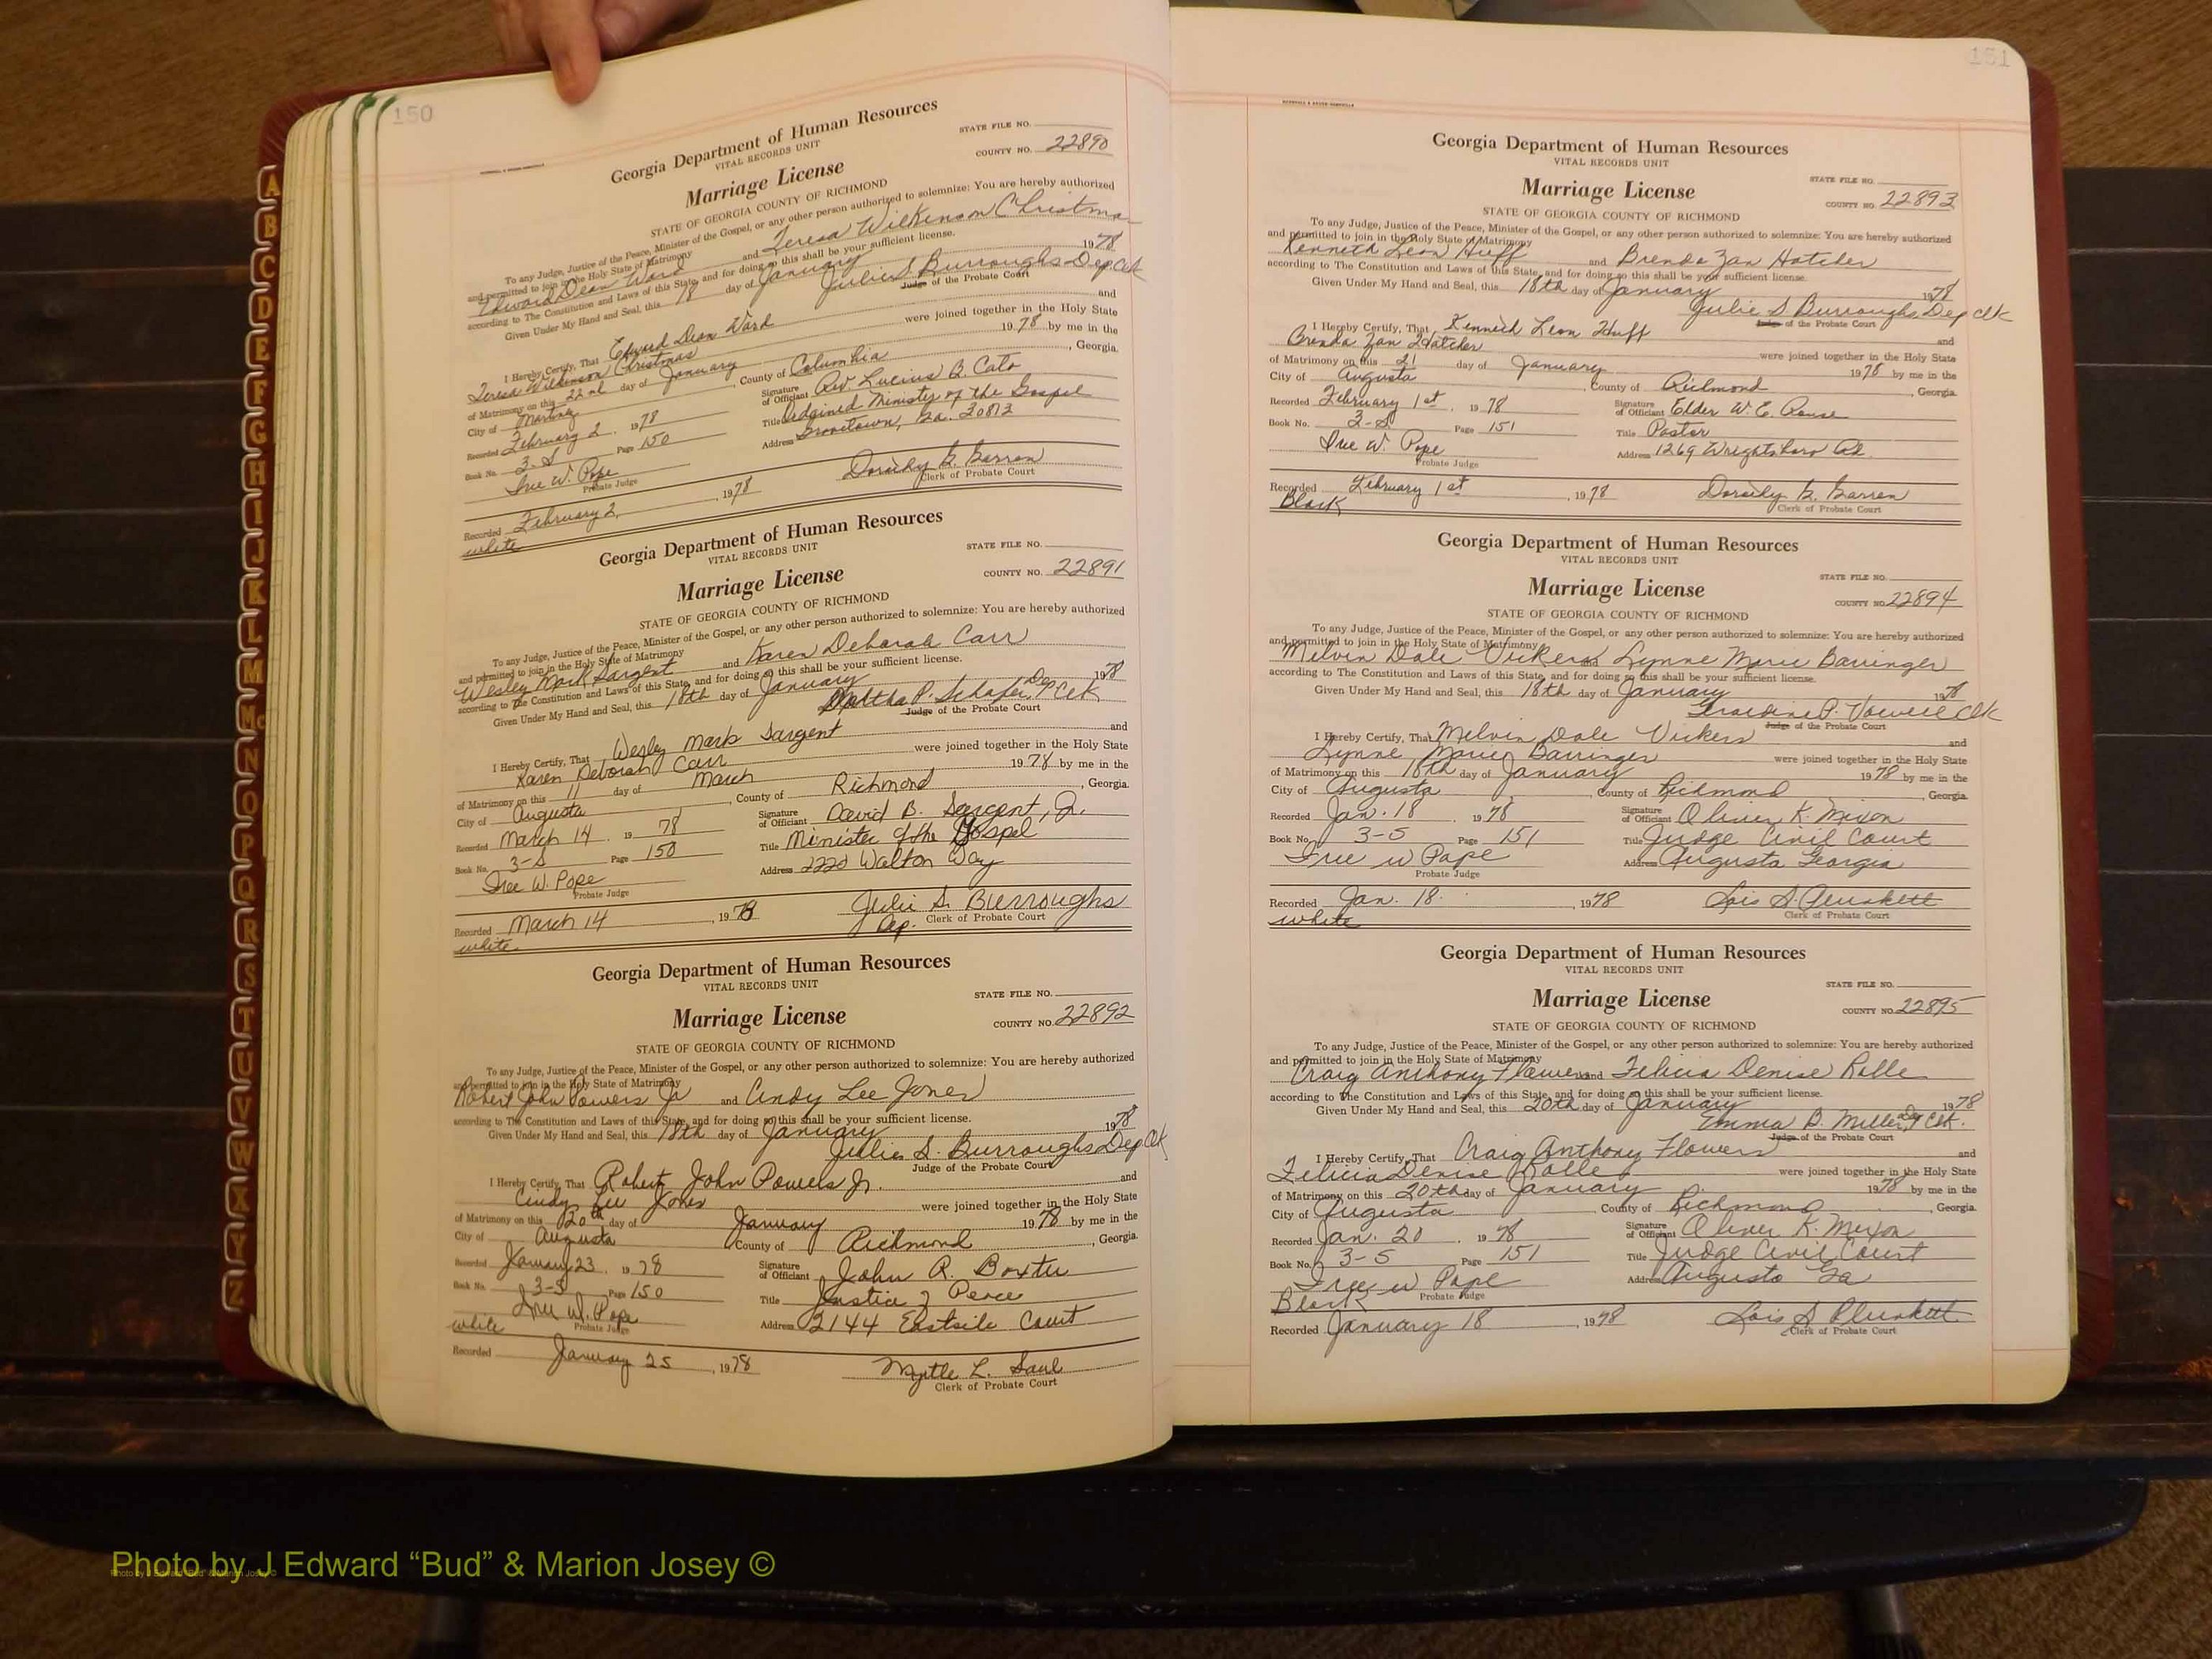 150
Georgia Department of Human Resources
VITAL RECORDS UNIT
STATE FILE NO.
COUNTY NO. 22890
Marriage License
STATE OF GEORGIA COUNTY OF RICHMOND
To any Judge, Justice of the Peace, Minister of the Gospel, or any other person authorized to solemnize: You are hereby authorized
and permitted to join in the Holy State of Matrimony
Edward Dean Ward and Teresa Wilkinson Christmas
according to The Constitution and Laws of this State, and for doing so this shall be your sufficient license.
Given Under My Hand and Seal, this 18 day of January 1978
Julie S. Burroughs Dep Clk
Judge of the Probate Court
I Hereby Certify, That Edward Dean Ward and
Teresa Wilkinson Christmas were joined together in the Holy State
of Matrimony on this 22nd day of January 1978 by me in the
City of Martinez, County of Columbia, Georgia.
Recorded February 2, 1978 Signature of Officiant Rev Lucius B. Cato
Book No. 3-S Page 150 Title Ordained Minister of the Gospel
Address Grovetown, Ga. 30813
Iree W. Pope
Probate Judge
Dorothy G. Barren
Clerk of Probate Court
Recorded February 2, 1978
white
Georgia Department of Human Resources
VITAL RECORDS UNIT
STATE FILE NO.
Marriage License
COUNTY NO. 22891
STATE OF GEORGIA COUNTY OF RICHMOND
To any Judge, Justice of the Peace, Minister of the Gospel, or any other person authorized to solemnize: You are hereby authorized
and permitted to join in the Holy State of Matrimony
Wesley Mark Sargent and Karen Deborah Carr
according to The Constitution and Laws of this State, and for doing so this shall be your sufficient license.
Given Under My Hand and Seal, this 18th day of January 1978
P. Schafer Dep Clk
Judge of the Probate Court
I Hereby Certify, That Wesley Mark Sargent and
Karen Deborah Carr were joined together in the Holy State
of Matrimony on this 11 day of March 1978 by me in the
City of Augusta, County of Richmond, Georgia.
Recorded March 14, 1978 Signature of Officiant David B. Sargent, Jr.
Book No. 3-S Page 150 Title Minister of the Gospel
Iree W. Pope Address 2220 Walton Way
Probate Judge
Julie S. Burroughs
Recorded March 14, 1978 Dep. Clerk of Probate Court
white
Georgia Department of Human Resources
VITAL RECORDS UNIT
STATE FILE NO.
Marriage License
COUNTY NO. 22892
STATE OF GEORGIA COUNTY OF RICHMOND
To any Judge, Justice of the Peace, Minister of the Gospel, or any other person authorized to solemnize: You are hereby authorized
and permitted to join in the Holy State of Matrimony
Robert John Powers Jr and Cindy Lee Jones
according to The Constitution and Laws of this State, and for doing so this shall be your sufficient license.
Given Under My Hand and Seal, this 18th day of January 1978
Julie S. Burroughs Dep Clk
Judge of the Probate Court
I Hereby Certify, That Robert John Powers Jr. and
Cindy Lee Jones were joined together in the Holy State
of Matrimony on this 20th day of January 1978 by me in the
City of Augusta County of Richmond, Georgia.
Recorded January 23, 1978 Signature of Officiant John R. Baxter
Book No. 3-S Page 150 Title Justice of Peace
Iree W. Pope Address 2144 Eastside Court
Probate Judge
white
Recorded January 25, 1978 Myrtle L. Saul
Clerk of Probate Court
151
Georgia Department of Human Resources
VITAL RECORDS UNIT
STATE FILE NO.
Marriage License
COUNTY NO. 22893
STATE OF GEORGIA COUNTY OF RICHMOND
To any Judge, Justice of the Peace, Minister of the Gospel, or any other person authorized to solemnize: You are hereby authorized
and permitted to join in the Holy State of Matrimony
Kenneth Leon Huff and Brenda Zan Hatcher
according to The Constitution and Laws of this State, and for doing so this shall be your sufficient license.
Given Under My Hand and Seal, this 18th day of January 1978
Julie S. Burroughs Dep Clk
Judge of the Probate Court
I Hereby Certify, That Kenneth Leon Huff and
Brenda Zan Hatcher were joined together in the Holy State
of Matrimony on this 21 day of January 1978 by me in the
City of Augusta, County of Richmond, Georgia.
Recorded February 1st, 1978 Signature of Officiant Elder W. E.
Book No. 3-S Page 151 Title Pastor
Iree W. Pope Address 1269 Wrightsboro Rd.
Probate Judge
Recorded February 1st, 1978 Dorothy G. Barren
Black Clerk of Probate Court
Georgia Department of Human Resources
VITAL RECORDS UNIT
STATE FILE NO.
Marriage License
COUNTY NO. 22894
STATE OF GEORGIA COUNTY OF RICHMOND
To any Judge, Justice of the Peace, Minister of the Gospel, or any other person authorized to solemnize: You are hereby authorized
and permitted to join in the Holy State of Matrimony
Melvin Dale Vickers and Lynne Marie Barringer
according to The Constitution and Laws of this State, and for doing so this shall be your sufficient license.
Given Under My Hand and Seal, this 18th day of January 1978
Geraldine P. Vowell Clk
Judge of the Probate Court
I Hereby Certify, That Melvin Dale Vickers and
Lynne Marie Barringer were joined together in the Holy State
of Matrimony on this 18th day of January 1978 by me in the
City of Augusta, County of Richmond, Georgia.
Recorded Jan. 18, 1978 Signature of Officiant Oliver K. Mixon
Book No. 3-S Page 151 Title Judge Civil Court
Iree W Pope Address Augusta Georgia
Probate Judge
Recorded Jan. 18, 1978 Lois S. Plunkett
white Clerk of Probate Court
Georgia Department of Human Resources
VITAL RECORDS UNIT
STATE FILE NO.
Marriage License
COUNTY NO. 22895
STATE OF GEORGIA COUNTY OF RICHMOND
To any Judge, Justice of the Peace, Minister of the Gospel, or any other person authorized to solemnize: You are hereby authorized
and permitted to join in the Holy State of Matrimony
Craig Anthony Flowers and Felicia Denise Rolle
according to The Constitution and Laws of this State, and for doing so this shall be your sufficient license.
Given Under My Hand and Seal, this 20th day of January 1978
Emma B. Miller, Dep Clk.
Judge of the Probate Court
I Hereby Certify, That Craig Anthony Flowers and
Felicia Denise Rolle were joined together in the Holy State
of Matrimony on this 20th day of January 1978 by me in the
City of Augusta, County of Richmond, Georgia.
Recorded Jan. 20, 1978 Signature of Officiant Oliver K. Mixon
Book No. 3-S Page 151 Title Judge Civil Court
Iree W Pope Address Augusta Ga
Black Probate Judge
Recorded January 18, 1978 Lois S Plunkett
Clerk of Probate Court
A
B
C
D
E
F
G
H
I
J
K
L
M
Mc
N
O
P
Q
R
S
T
U
V
W
X
Y
Z
Photo by J Edward “Bud” & Marion Josey ©
Photo by J Edward “Bud” & Marion Josey ©